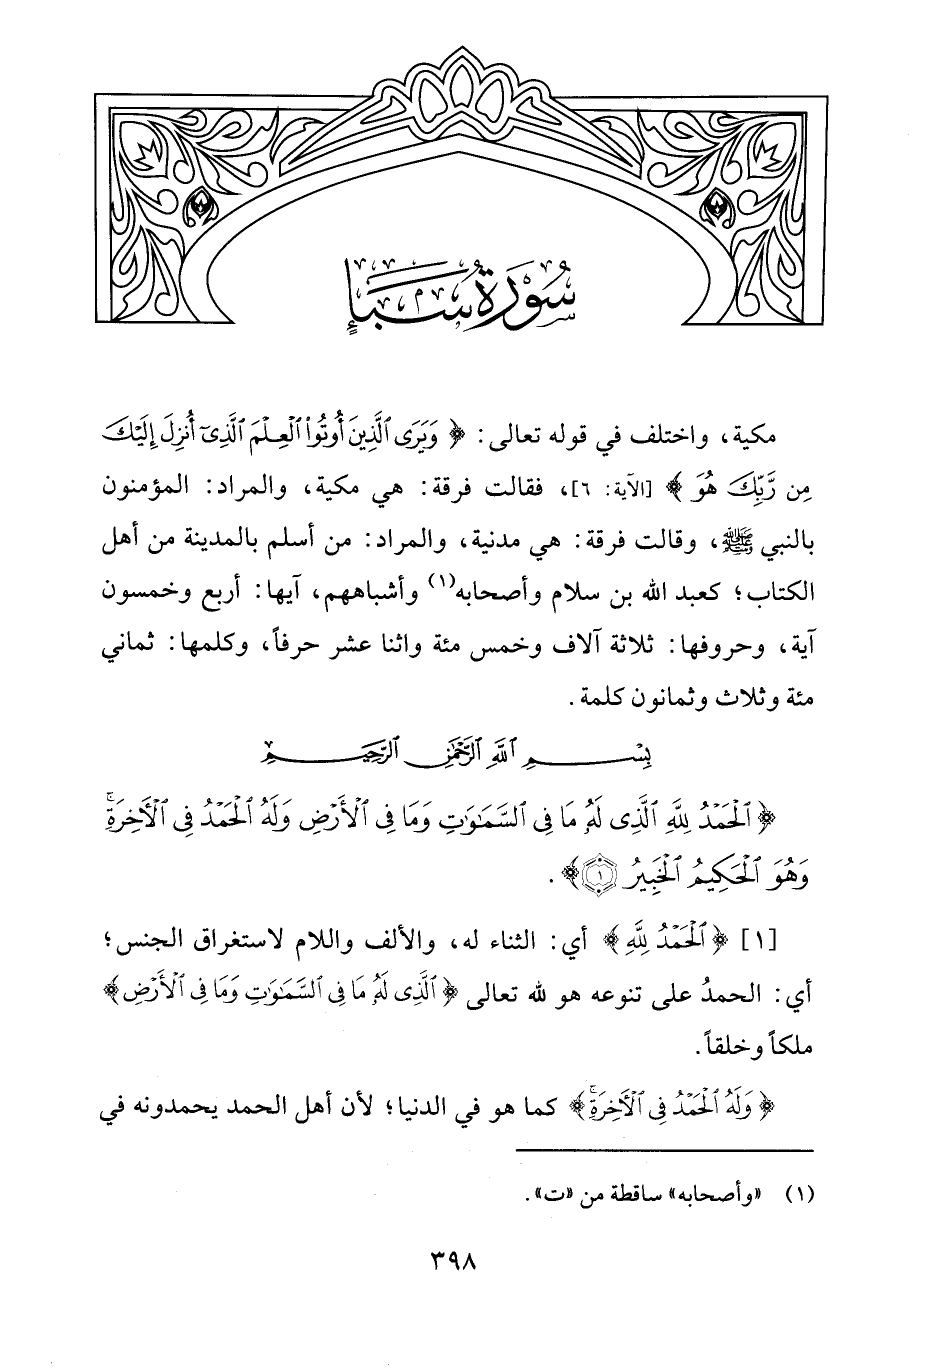 سُورَةُ سَبَإٍ
مكية، واختلف في قوله تعالى: ﴿وَيَرَى ٱلَّذِينَ أُوتُواْ ٱلْعِلْمَ ٱلَّذِىٓ أُنزِلَ إِلَيْكَ
مِن رَّبِّكَ هُوَ﴾ [الآية: ٦]، فقالت فرقة: هي مكية، والمراد: المؤمنون
بالنبي ﷺ، وقالت فرقة: هي مدنية، والمراد: من أسلم بالمدينة من أهل
الكتاب؛ كعبد الله بن سلام وأصحابه(١) وأشباههم، آيها: أربع وخمسون
آية، وحروفها: ثلاثة آلاف وخمس مئة واثنا عشر حرفاً، وكلمها: ثماني
مئة وثلاث وثمانون كلمة.
بِسْمِ ٱللَّهِ ٱلرَّحْمَٰنِ ٱلرَّحِيمِ
﴿ٱلْحَمْدُ لِلَّهِ ٱلَّذِى لَهُۥ مَا فِى ٱلسَّمَٰوَٰتِ وَمَا فِى ٱلْأَرْضِ وَلَهُ ٱلْحَمْدُ فِى ٱلْأَخِرَةِۚ
وَهُوَ ٱلْحَكِيمُ ٱلْخَبِيرُ ١﴾.
[١] ﴿ٱلْحَمْدُ لِلَّهِ﴾ أي: الثناء له، والألف واللام لاستغراق الجنس؛
أي: الحمدُ على تنوعه هو لله تعالى ﴿ٱلَّذِى لَهُۥ مَا فِى ٱلسَّمَٰوَٰتِ وَمَا فِى ٱلْأَرْضِ﴾
ملكاً وخلقاً.
﴿وَلَهُ ٱلْحَمْدُ فِى ٱلْأَخِرَةِۚ﴾ كما هو في الدنيا؛ لأن أهل الحمد يحمدونه في
(١) «وأصحابه» ساقطة من «ت».
٣٩٨